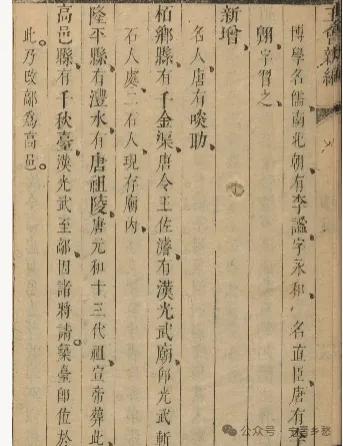 博學名儒南北朝有李謐字永和名直臣唐有李
翱字習之
新增
名人唐有啖助
栢鄉縣有千金渠唐令王佐濬有漢光武廟即光武斬
石人處二石人現存廟內
隆平縣有澧水有唐祖陵唐元和十三代祖宣帝葬此
高邑縣有千秋臺漢光武至鄗因諸將請築臺即位於
此乃改鄗爲高邑
公众号
乡愁